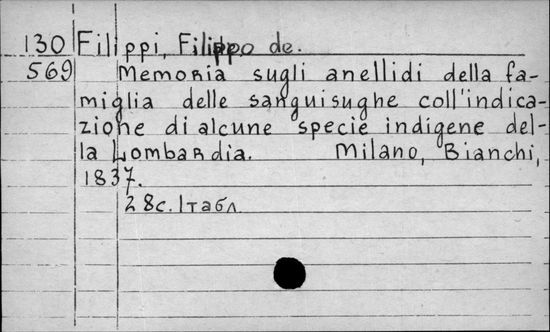 130 Filippi, Filippo de.
569 Memoria sugli anellidi della fa-
miglia delle sanguisughe coll'indica-
zione di alcune specie indigene del-
la Lombardia. Milano, Bianchi,
1837.
28с. 1табл.